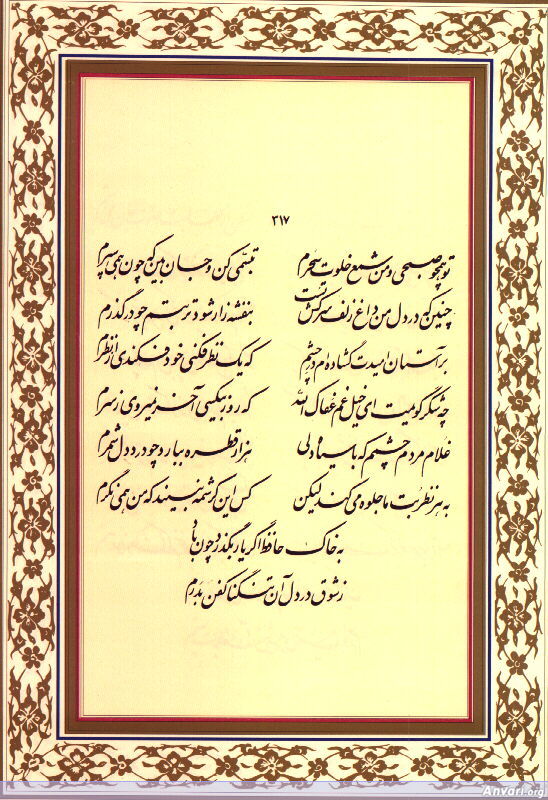 ۳۱۷
تو همچو صبحی و من شمع خلوت سحرم تبسّمی کن و جان بین که چون همی سپرم
چنین که در دل من داغ زلف سرکش تست بنفشه زار شود تربتم چو درگذرم
بر آستان امیدت گشاده‌ام در چشم که یک نظر فکنی خود فکندی از نظرم
چه شکر گویمت ای خیل غم عفاک الله که روز بیکسی آخر نمیروی ز سرم
غلام مردم چشمم که با سیاه دلی هزار قطره ببارد چو درد دل شمرم
به هر نظر بت ما جلوه می‌کند لیکن کس این کرشمه نبیند که من همی نگرم
به خاک حافظ اگر یار بگذرد چون باد
ز شوق در دل آن تنگنا کفن بدرم
Anvari.org